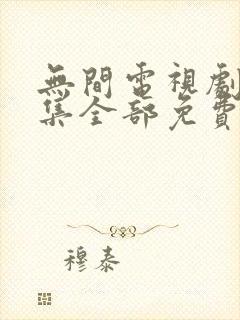 無間電視劇
集全部免費
穆泰